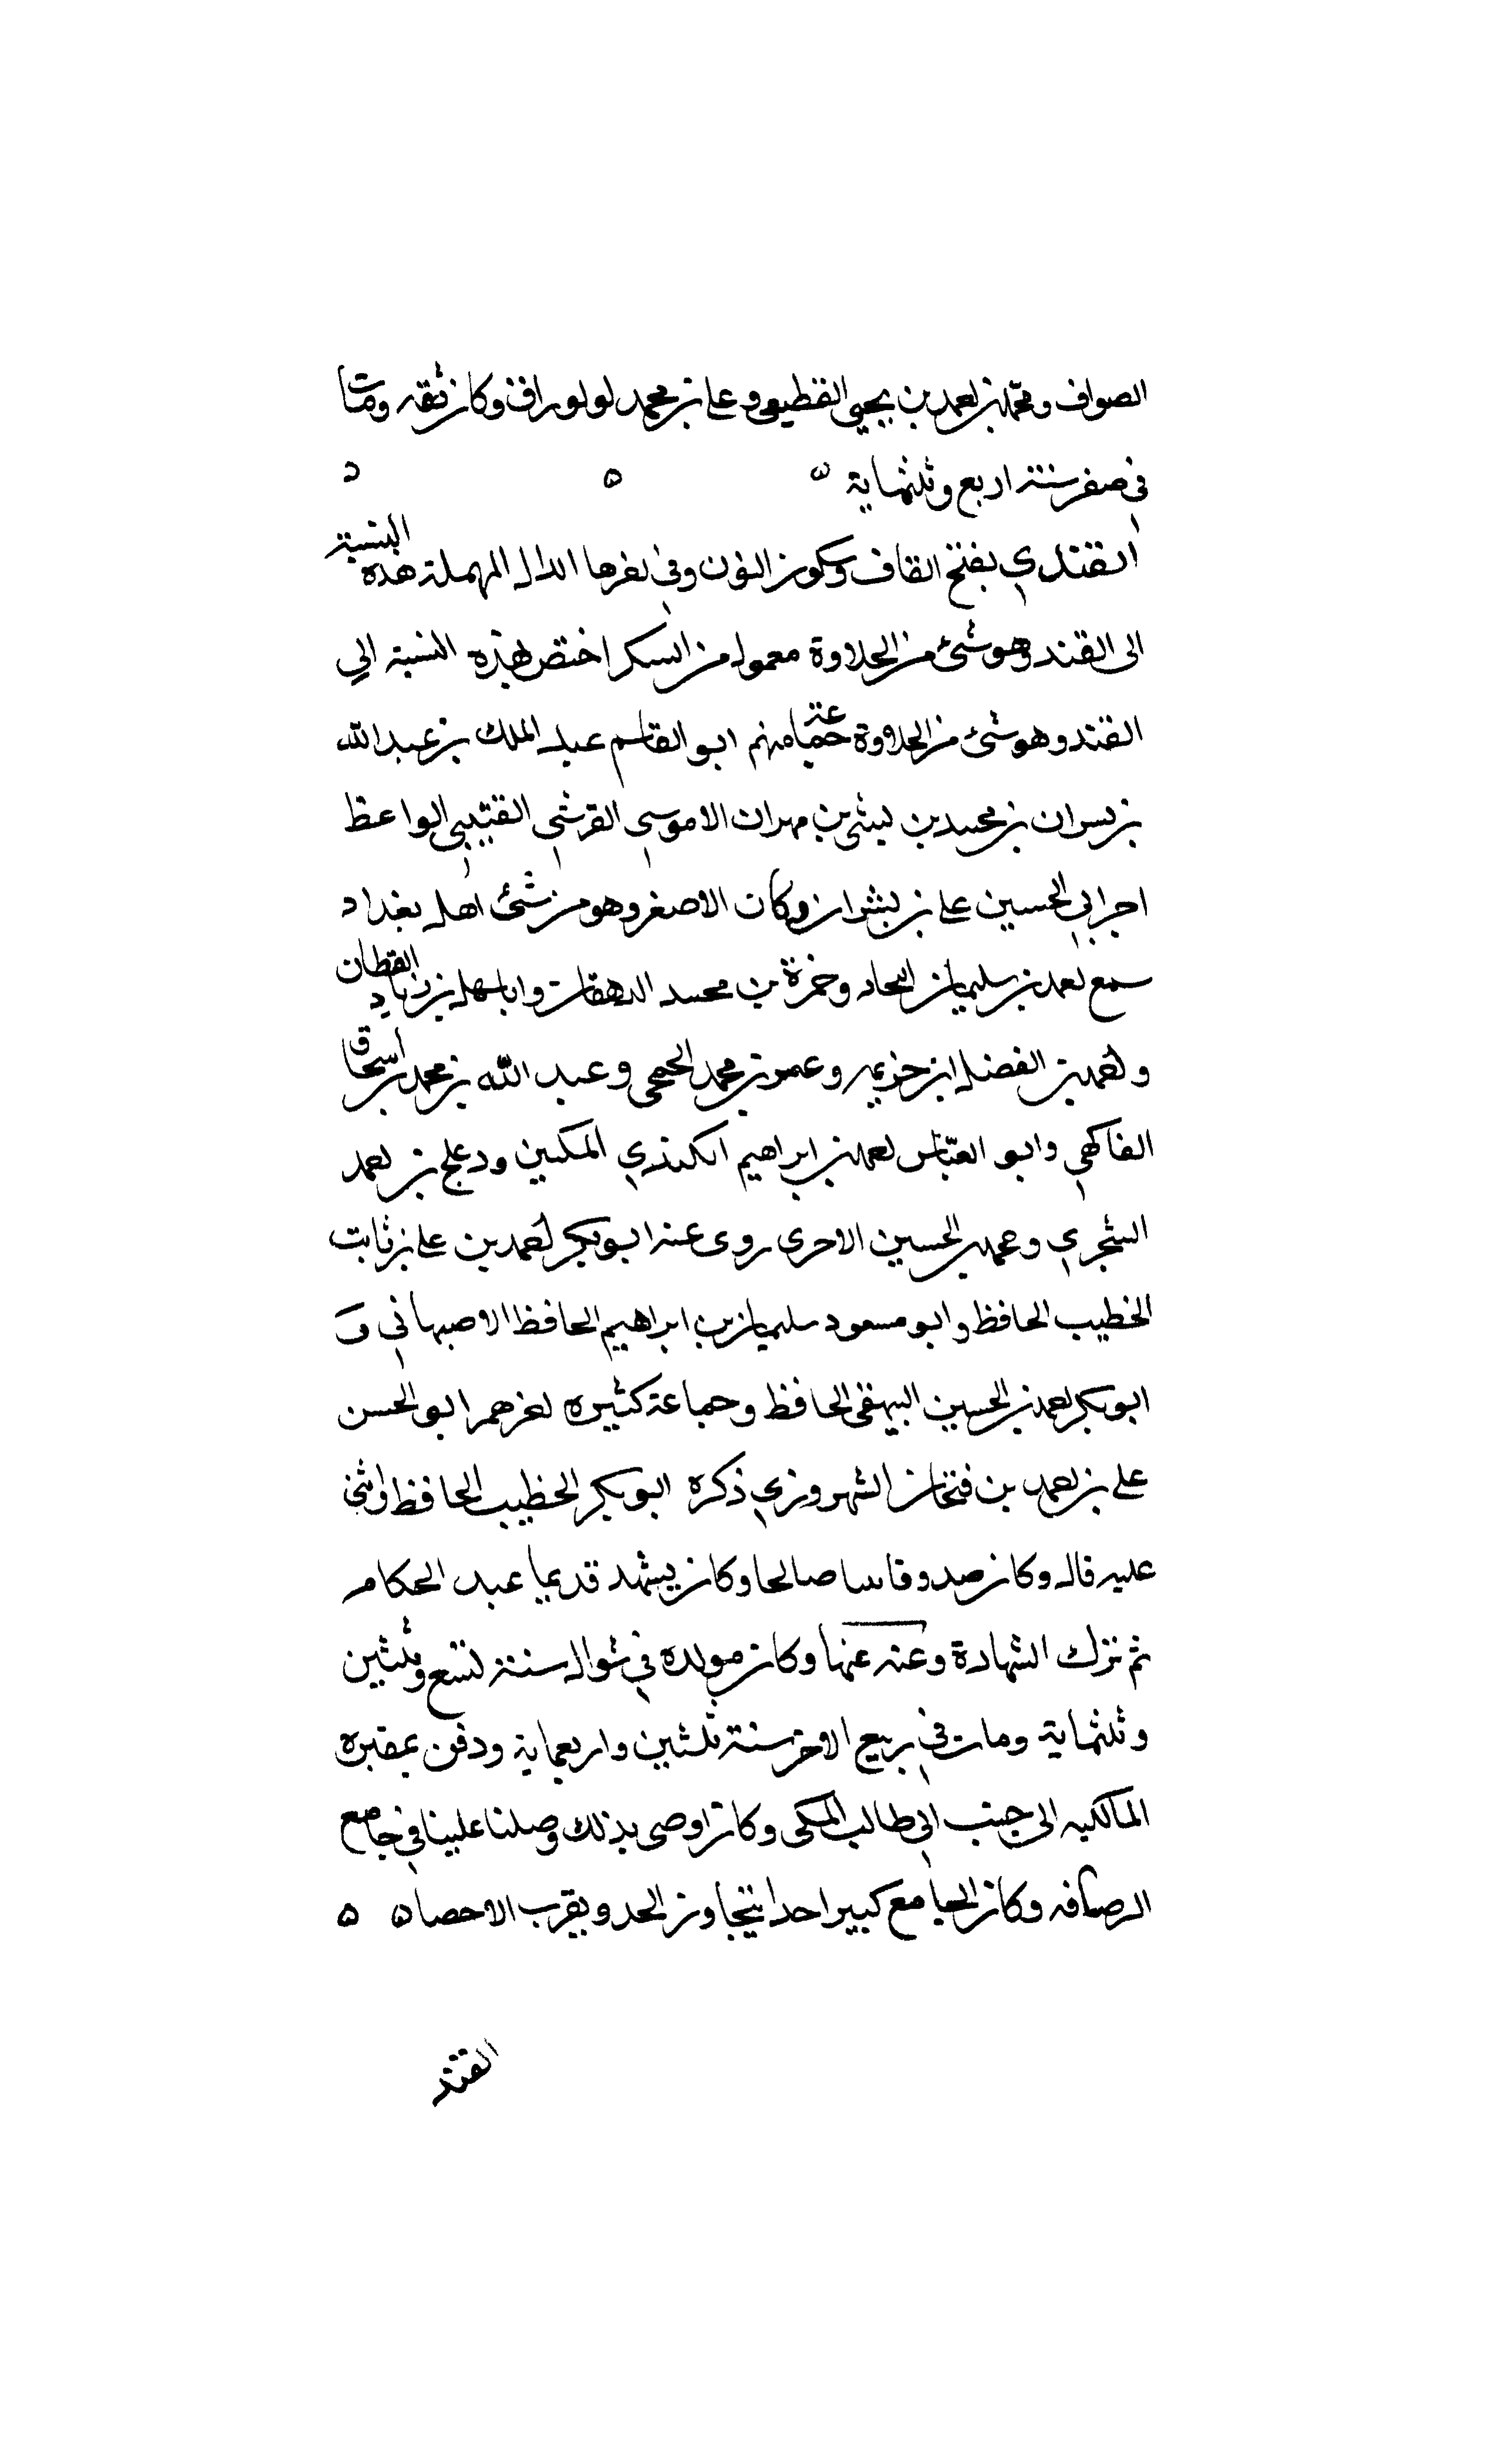 الصواف ومحمد بن احمد بن يحيى القطيعي وعلى بن محمد لولو وراق وكان ثقه ومات
فى صفر سنة اربع وثلثماية ه ه د
القندي بفتح القاف وسكون النون وفى اخرها الدال المهملة هذه النسبة
الى القند وهو شئ من الحلاوة معمول من السكر اختص بهذه النسبة الى
القند وهو شئ من الحلاوة جماعة منهم ابو القاسم عبد الملك بن عبد الله
بن بسران بن محمد بن بشر بن مهران الاموى القرشى الواعظ
اخو ابى الحسين على بن بشران وكان الاصغر وهو من اهل بغداد
سمع احمد بن سليمان النجاد وحمزة بن محمد الدهقان وابا سهل بن زياد القطان
واحمد بن الفضل ابن خزيمه وعمر بن محمد الجمحى وعبد الله بن محمد بن اسحاق
الفاكهي وابو العباس احمد بن ابراهيم الكندي المكيين ودعلج بن احمد
السجزي ومحمد بن الحسين الاجرى روى عنه ابو بكر احمد بن على بن ثابت
الخطيب الحافظ وابو مسعود سليمان بن ابراهيم الحافظ الاصبهانى و
ابو بكر احمد بن الحسين البيهقى الحافظ وجماعة كثيره اخرهم ابو الحسن
على بن احمد بن فتحان الشهروزي ذكره ابو بكر الخطيب الحافظ واثنى
عليه قال وكان صدوقا صالحا وكان يشهد قديما عند الحكام
ثم ترك الشهادة رغبة عنها وكان مولده فى شوال سنة تسع وثلثين
وثلثماية ومات فى ربيع الاخر سنة ثلثين واربعماية ودفن بمقبره
المالكيه الى جنب ابى طالب المكى وكان اوصى بذلك وصلنا علينا فى جامع
الرصافه وكان الجامع كبير احدا يتجاوز الحد ويقرب الاحصا ه ه
القند